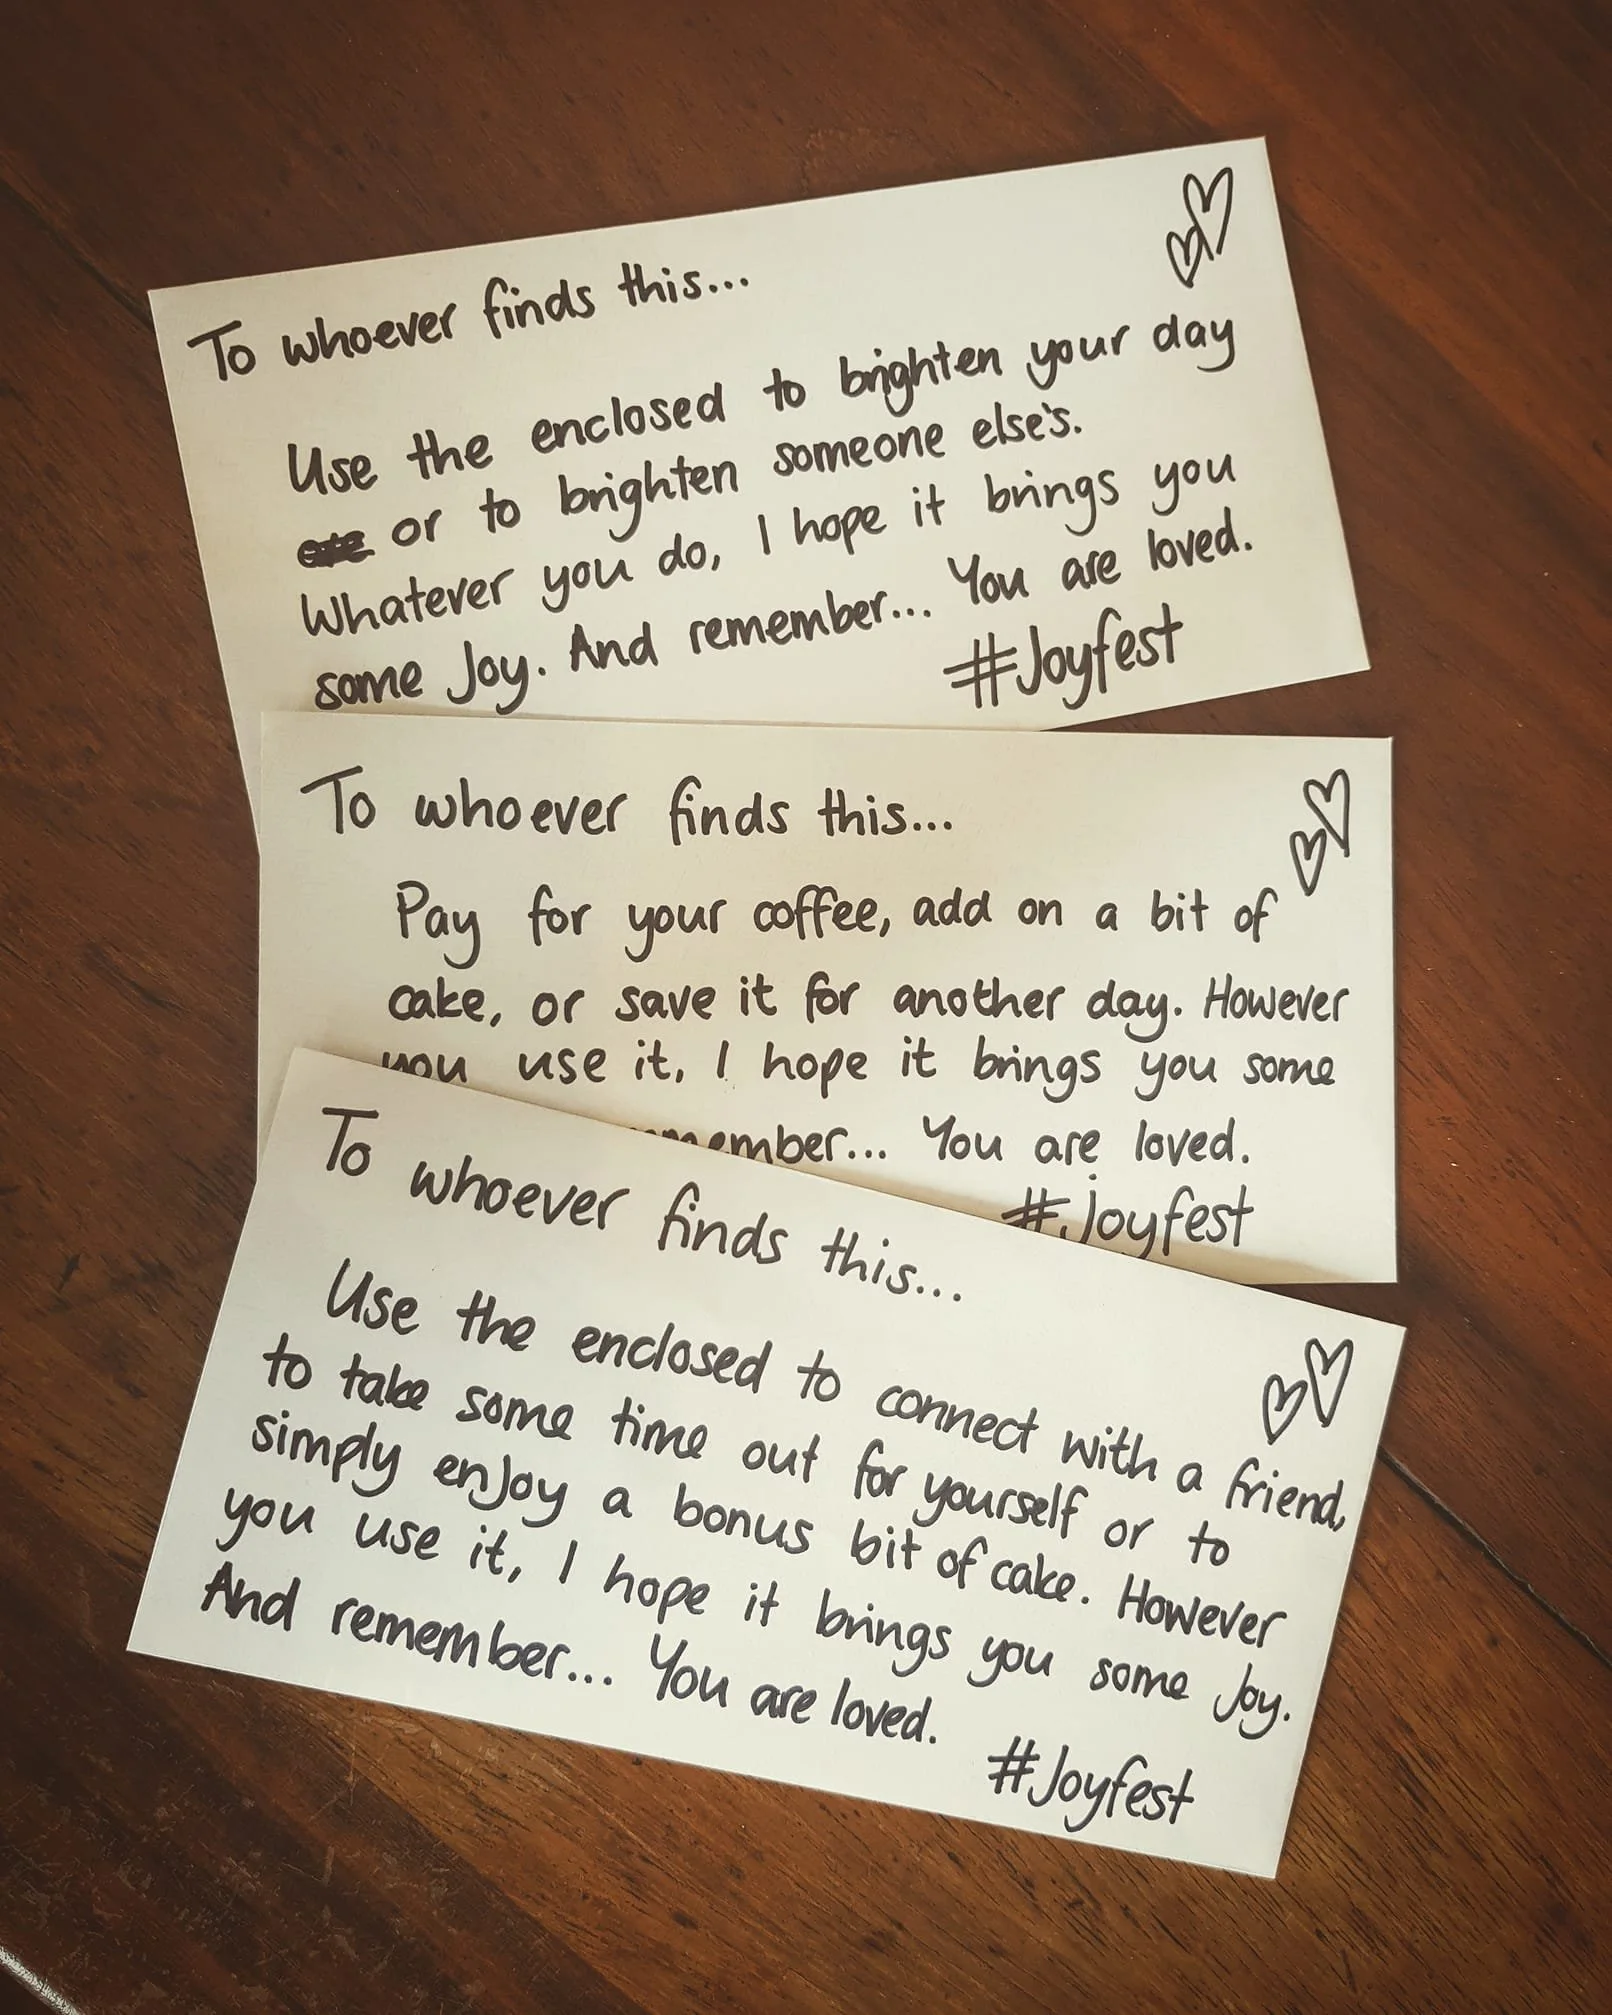 To whoever finds this...
Use the enclosed to brighten your day
or to brighten someone else's.
Whatever you do, I hope it brings you
some Joy. And remember... You are loved.
#Joyfest
To whoever finds this...
Pay for your coffee, add on a bit of
cake, or save it for another day. However
you use it, I hope it brings you some
remember... You are loved.
#Joyfest
To whoever finds this...
Use the enclosed to connect with a friend,
to take some time out for yourself or to
simply enjoy a bonus bit of cake. However
you use it, I hope it brings you some Joy.
And remember... You are loved.
#Joyfest